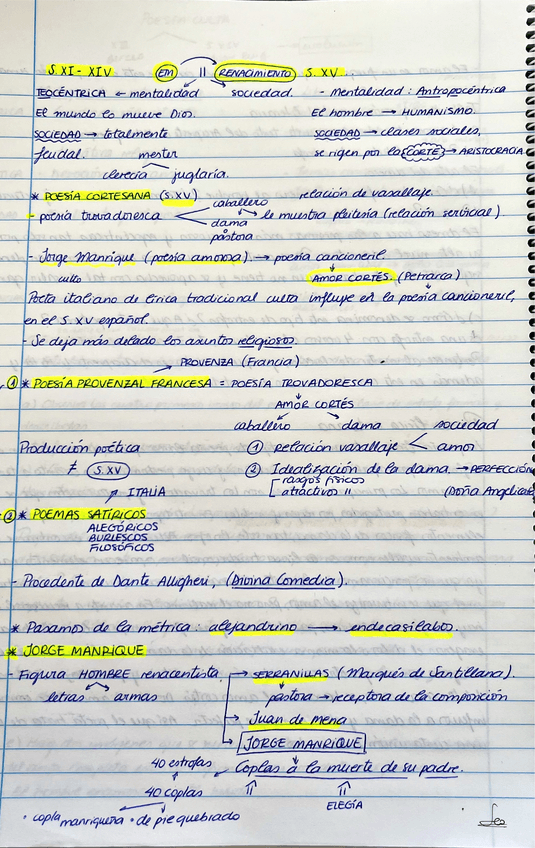 S. XI - XIV EM || RENACIMIENTO S. XV
TEOCÉNTRICA ← mentalidad sociedad. - Mentalidad: Antropocéntrica
El mundo lo mueve Dios. El hombre → HUMANISMO.
SOCIEDAD → totalmente SOCIEDAD → clases sociales,
feudal. mester se rigen por la CORTE → ARISTOCRACIA
clerecía juglaría.
* POESÍA CORTESANA (S. XV) caballero relación de vasallaje.
- poesía trovadoresca dama → le muestra pleitesía (relación servicial)
pastora
- Jorge Manrique (poesía amorosa). → poesía cancioneril.
culto AMOR CORTÉS. (Petrarca)
Poeta italiano de lírica tradicional culta influye en la poesía cancioneril,
en el S. XV español.
- Se deja más delado los asuntos religiosos.
→ PROVENZA (Francia)
① * POESÍA PROVENZAL FRANCESA = POESÍA TROVADORESCA
AMOR CORTÉS
caballero dama sociedad
Producción poética ① relación vasallaje < amor
≠ S. XV ② Idealización de la dama → PERFECCIÓN
ITALIA [rasgos físicos
atractivos " (Doña Angelicat
② * POEMAS SATÍRICOS
ALEGÓRICOS
BURLESCOS
FILOSÓFICOS
- Procedente de Dante Alligheri, (Divina Comedia).
* Pasamos de la métrica: alejandrino → endecasílabos.
* JORGE MANRIQUE
- Figura HOMBRE renacentista. → SERRANILLAS (Marqués de Santillana).
letras armas pastora → receptora de la composición
→ Juan de mena
→ JORGE MANRIQUE
40 estrofas Coplas a la muerte de su padre.
40 coplas ELEGÍA
• copla manriqueña • de pie quebrado